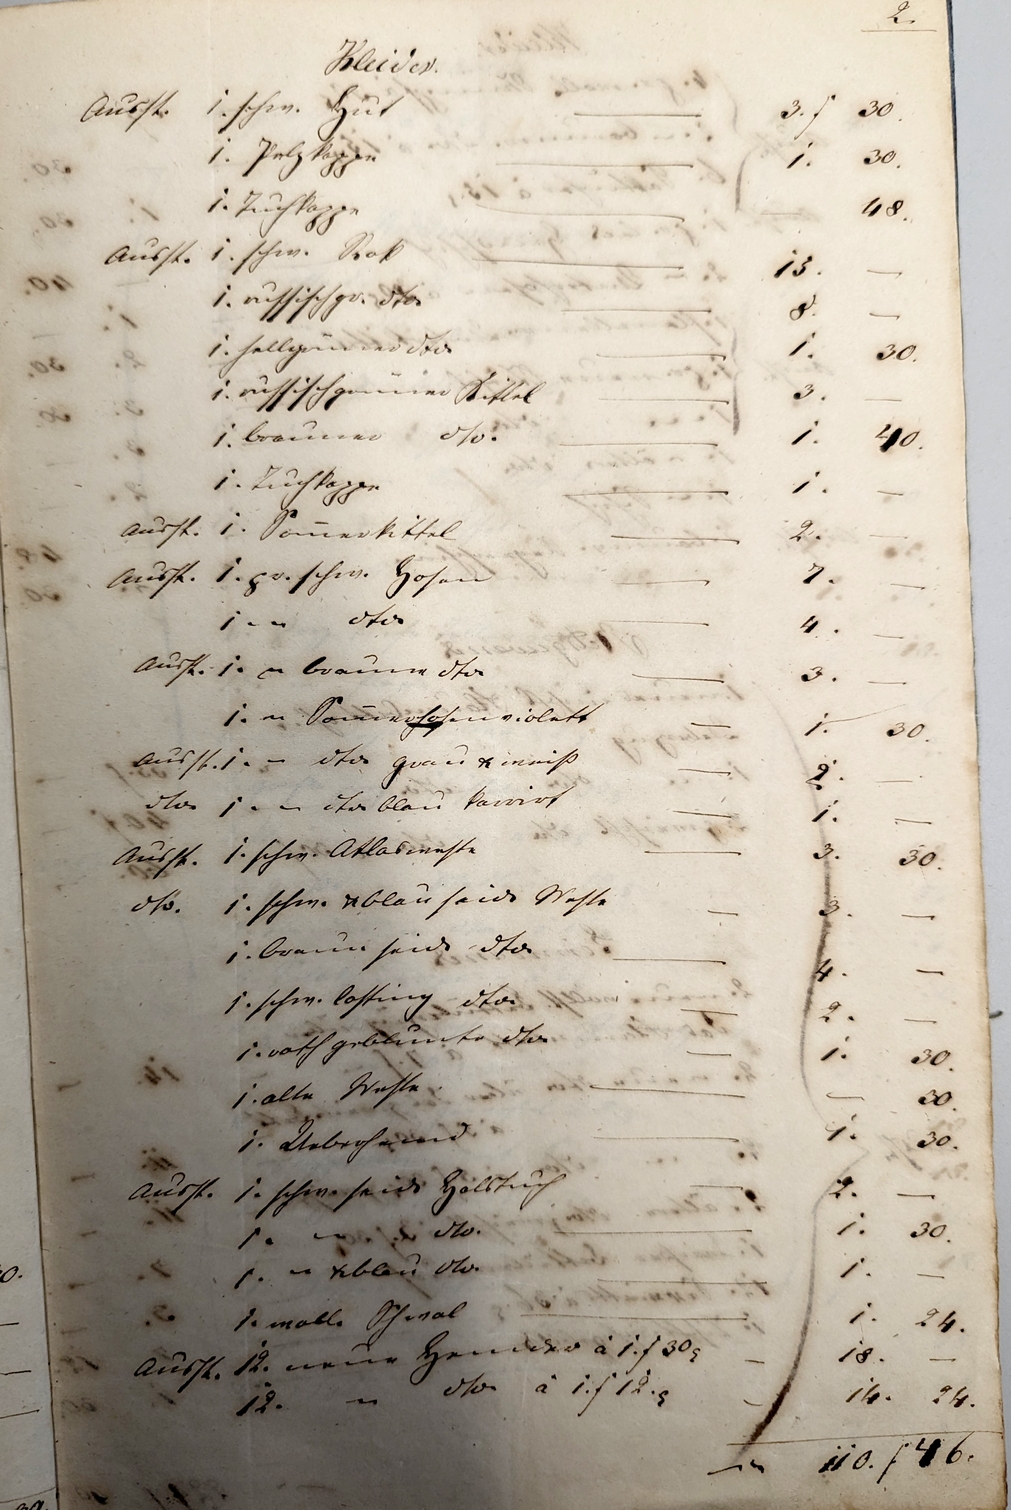 2.
Kleider.
Ausst. 1. schw. Hut 3. f 30.
1. Pelzkappe 1. 30.
1. Tuchkappe — 48.
Ausst. 1. schw. Rok 13. —
1. russischgr. dto 8. —
1. hellgrüner dto 1. 30.
1. russischgrüner Kittel 3. —
1. brauner dto. 1. 40.
1. Tuchkappe 1. —
Ausst. 1. Som̅erkittel 2. —
Ausst. 1. pr. schw. Hosen 7. —
1. " dto 4. —
Ausst. 1. " braune dto 3. —
1. " Som̅erhosen violett 1. 30.
Ausst. 1. " dto grau & weiß 2. —
dto 1. " dto blau karrirt 1. —
Ausst. 1. schw. Atlasweste 3. 30.
dto. 1. schw. & blau seide Weste 3. —
1. braun seide dto 4. —
1. schw. lasting dto. 2. —
1. roth geblumte dto 1. 30.
1. alte Weste — 30.
1. Ueberhemd 1. 30.
Ausst. 1. schw. seide Halstuch 2. —
1. " dto. 1. 30.
1. " & blau dto. 1. —
1. woll. Schwal 1. 24.
Ausst. 12. neue Hemder à 1. f 30 18. —
12. " dto à 1. f 12. 14. 24.
110. f 46.